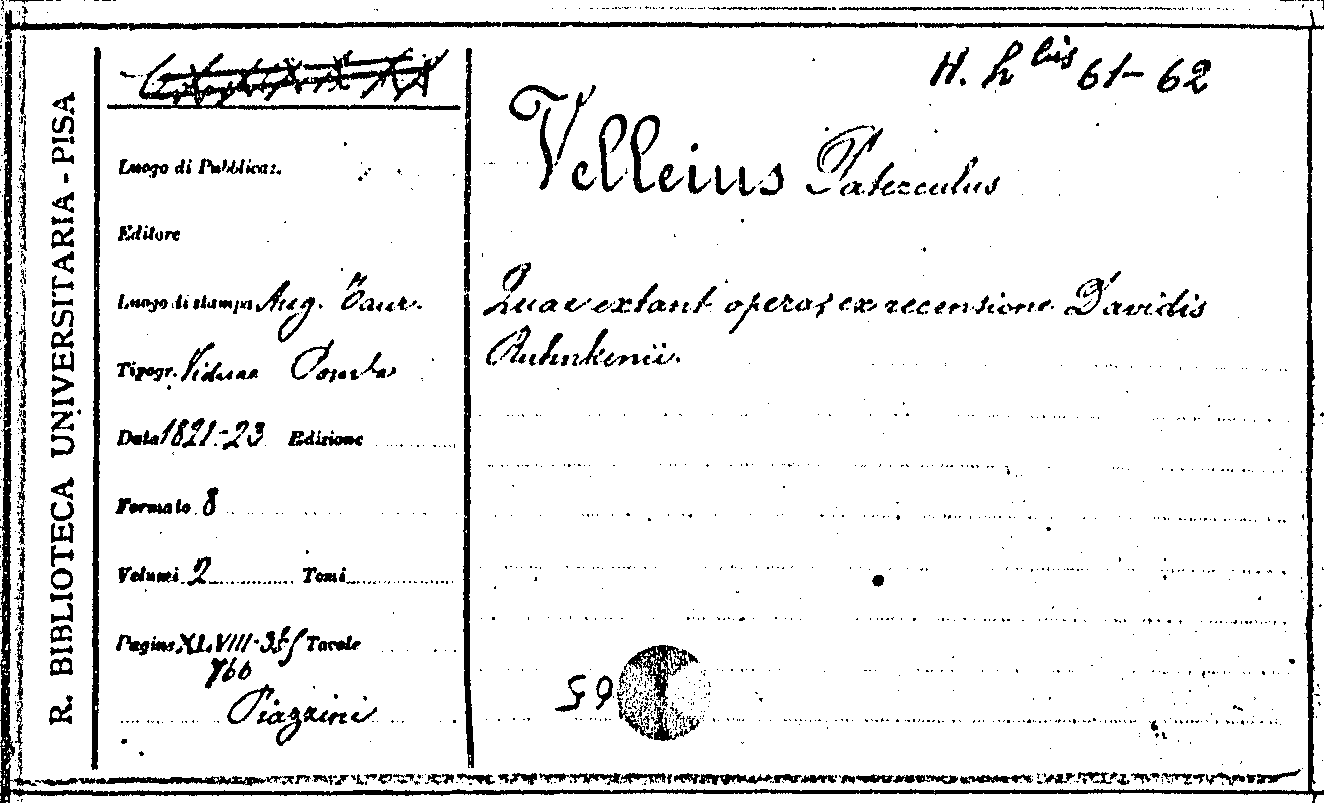 R. BIBLIOTECA UNIVERSITARIA - PISA
H. h bis 61-62
Velleius Paterculus
Quae extant opera, ex recensione Davidis
Ruhnkenii.
Luogo di Pubblicaz.
Editore
Luogo di stampa Aug. Taur.
Tipogr. Viduae Pomba
Data 1821-23 Edizione
Formato 8
Volumi 2 Tomi
Pagine XLVIII- Tavole
760
Piazzini